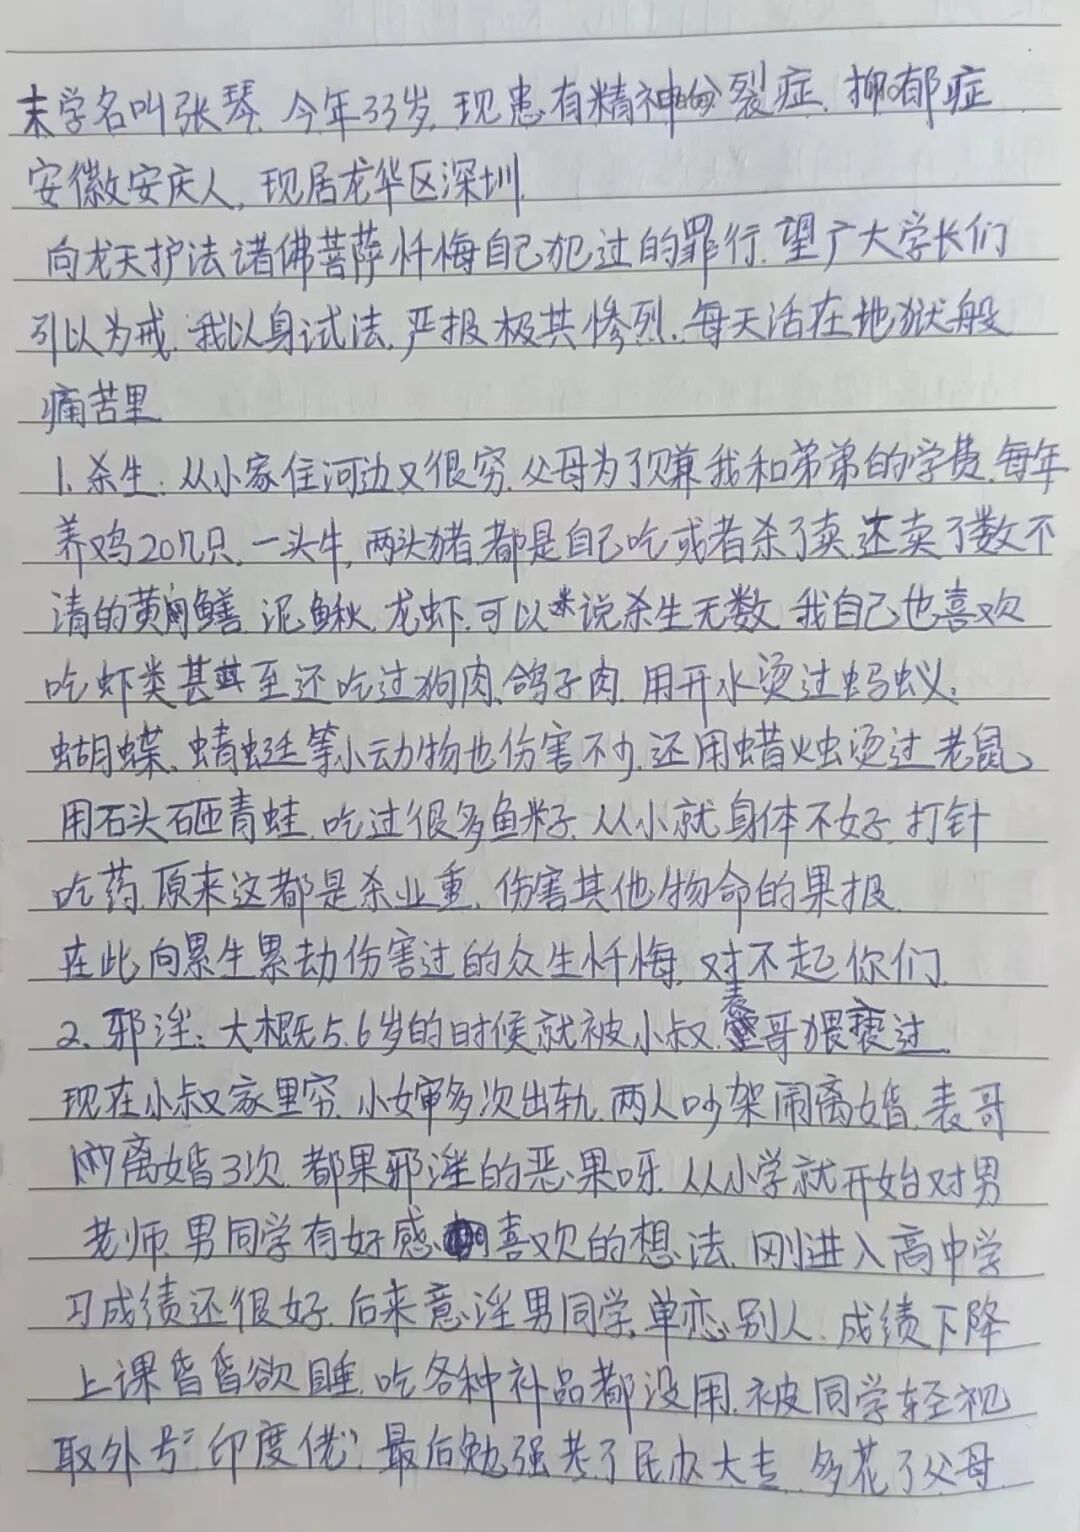 末学名叫张琴.今年33岁.现患有精神的裂症.抑郁症
安徽安庆人,现居龙华区深圳.
向龙天护法诸佛菩萨忏悔自己犯过的罪行.望广大学长们
引以为戒.我以身试法.严报极其惨烈.每天活在地狱般
痛苦里.
1.杀生:从小家住河边又很穷.父母为了赚我和弟弟的学费.每年
养鸡20几只.一头牛,两头猪.都是自己吃或者杀了卖.还卖了数不
清的黄鳝.泥鳅.龙虾.可以说杀生无数.我自己也喜欢
吃虾类甚至还吃过狗肉、鸽子肉.用开水烫过蚂蚁、
蝴蝶、蜻蜓等小动物也伤害不少.还用蜡烛烫过老鼠、
用石头砸青蛙.吃过很多鱼籽.从小就身体不好.打针
吃药.原来这都是杀业重.伤害其他物命的果报.
在此向累生累劫伤害过的众生忏悔.对不起你们.
2.邪淫:大概5.6岁的时候就被小叔.表哥猥亵过.
现在小叔家里穷.小婶多次出轨.两人吵架闹离婚.表哥
离婚3次.都果邪淫的恶果呀.从小学就开始对男
老师.男同学有好感.喜欢的想法.刚进入高中学
习成绩还很好.后来意淫男同学.单恋别人.成绩下降
上课昏昏欲睡.吃各种补品都没用.被同学轻视
取外号"印度佬".最后勉强考了民办大专.多花了父母